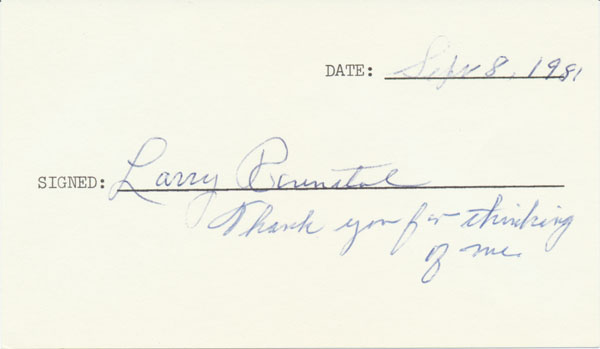 DATE: Sept 8, 1981
SIGNED: Larry Rosenthal
Thank you for thinking
of me.